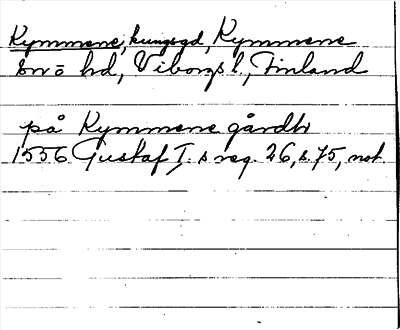 Kymmene, kungsgd, Kymmene
bvo hd, Viborgs l., Finland
på Kymmene gårdh
1556 Gustaf I. s reg. 26, s. 75, not.